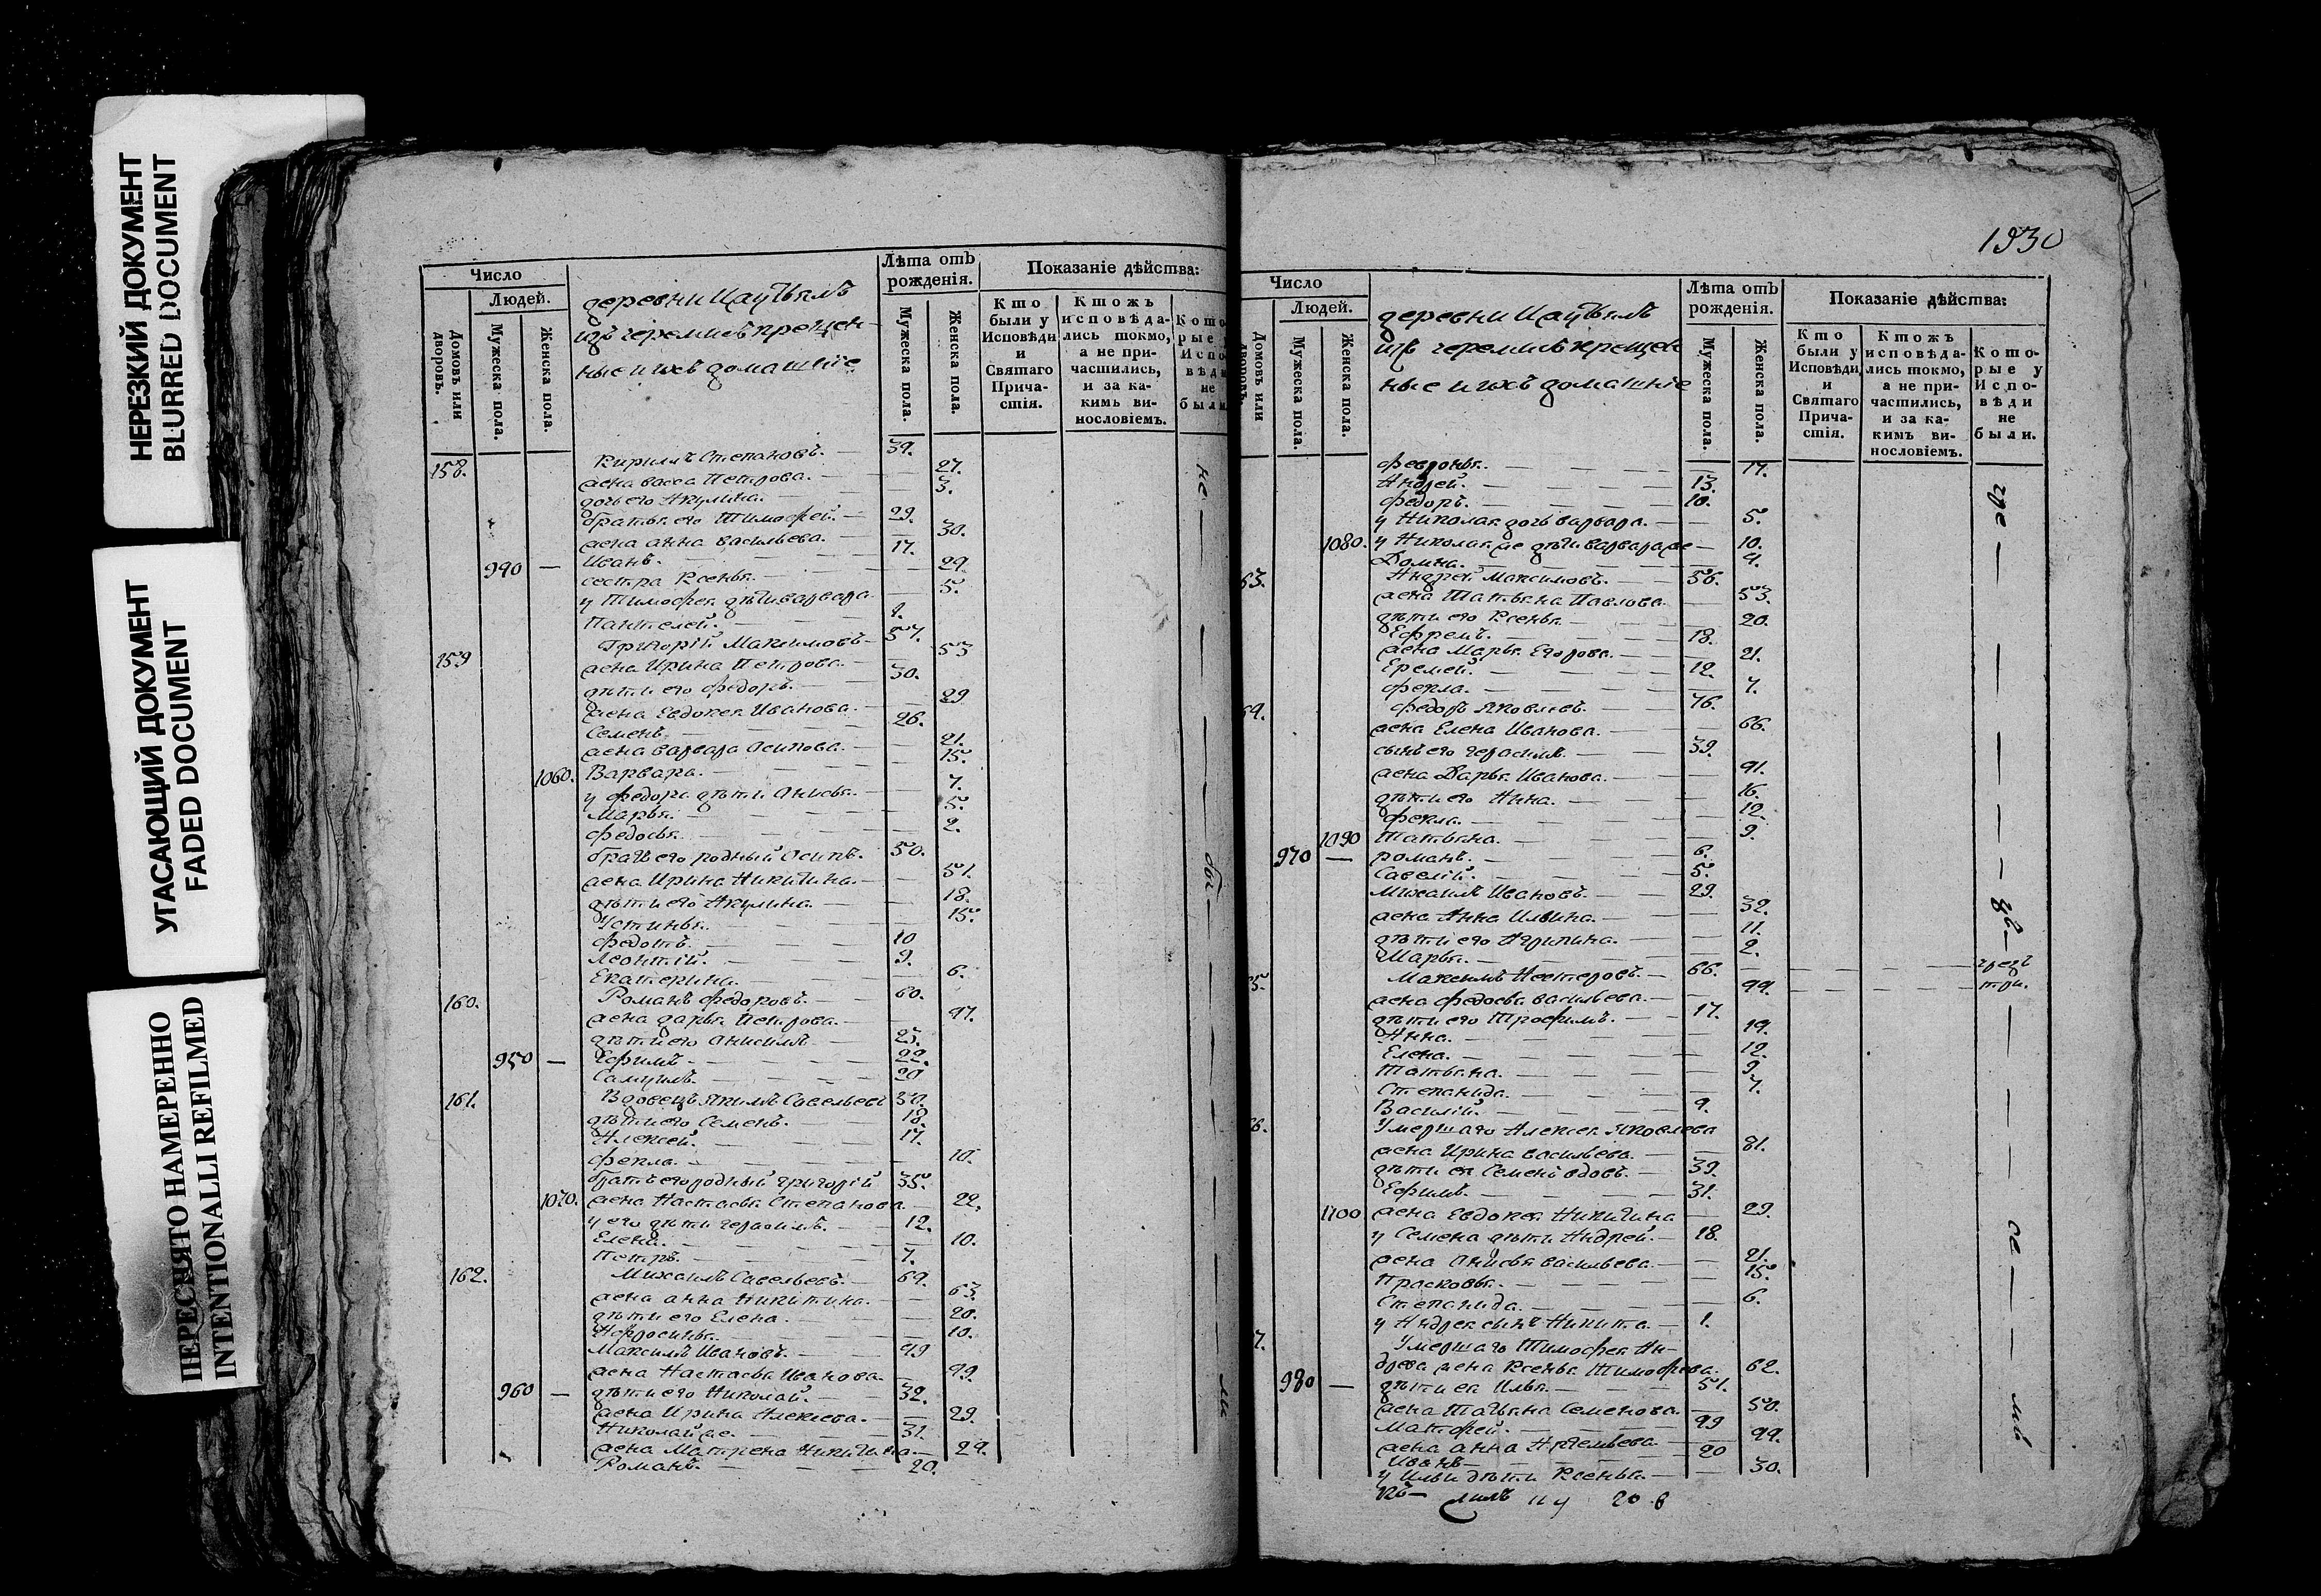 НЕРЕЗКИЙ ДОКУМЕНТ
BLURRED DOCUMENT
УГАСАЮЩИЙ ДОКУМЕНТ
FADED DOCUMENT
ПЕРЕСНЯТО НАМЕРЕННО
INTENTIONALLI REFILMED
Число
Людей.
Домовъ или дворовъ.
Мужеска пола.
Женска пола.
деревни
изъ черемисъ крещен-
ные и ихъ домашніе
Лѣта отъ рожденія.
Мужеска пола.
Женска пола.
Показаніе дѣйства:
Кто были у Исповѣди и Святаго Прича-стія.
Ктожъ исповѣда-лись токмо, а не при-частились, и за ка-кимъ ви-нословіемъ.
158. Кирилъ Степановъ. — 39.
жена васса Петрова. — 27.
дочь его Акулина. — 3.
братья его Тимофей. — 29.
жена анна васильева. — 30.
990 — Иванъ. — 17.
сестра Ксенья. — 29
у Тимофея дѣти варвара — 5.
Пантелей.
159 Григорій Максимовъ — 57.
жена Ирина Петрова. — 53
дѣти его федоръ. — 30.
жена Евдокея Иванова. — 29
Семенъ — 26.
жена варвара Осипова. — 21.
1060. Варвара. — 15.
у федора дѣти Анисья. — 7.
Марья. — 5.
федосья. — 2.
братъ его родный Осипъ. 50.
жена Ирина Никитина. — 51.
дѣти его Акулина. — 18.
Устинья. — 15.
федотъ. — 10
Леонтій. — 9.
Екатерина. — 6.
160. Романъ федоровъ. — 60.
жена дарья Петрова. — 47.
дѣти его Анисимъ — 25.
950 — Ефимъ. — 22.
Самуилъ. — 20
161. Вдовецъ Якимъ Савельевъ
дѣти его Семенъ. — 18.
Алексей. — 17.
фекла. — 10.
братъ его родный григорій 35.
1070. жена Настасья Степанова — 22.
у его дѣти герасимъ. — 12.
Елена. — 10.
Петръ. — 7.
162. Михаилъ Савельевъ. — 64.
жена анна Никитина. — 63.
дѣти его Елена. — 20.
Афросинья. — 10.
Максимъ Ивановъ. — 49
жена Настасья Иванова. — 49.
960 — дѣти его Николай. — 32.
жена Ирина Алексева. — 29.
Николай же. — 31.
жена Матрена Никитина — 24.
Романъ. — 20.
1930
Число
Людей.
Домовъ или дворовъ.
Мужеска пола.
Женска пола.
деревни
изъ черемисъ крещен
ные и ихъ домашніе
Лѣта отъ рожденія.
Мужеска пола.
Женска пола.
Показаніе дѣйства:
Кто были у Исповѣди и Святаго Прича-стія.
Ктожъ исповѣда-лись токмо, а не при-частились, и за ка-кимъ ви-нословіемъ.
Кото-рые у Испо-вѣди не были.
февронья. — 17.
Андрей. — 13.
федоръ. — 10.
у Николая дочь варвара. — 5.
1080. у Николая же дѣти варвара же — 10.
Домна. — 4.
63. Андрей Максимовъ. — 56.
жена Татьяна Павлова. — 53.
дѣти его Ксенья. — 20.
Ефремъ. — 18.
жена Марья Егорова. — 21.
Еремей. — 12.
фекла. — 7.
64. федоръ Яковлевъ. — 76.
жена Елена Иванова. — 66.
сынъ его герасимъ. — 39.
жена Дарья Иванова. — 41.
дѣти его Анна. — 16.
фекла. — 12.
1090 Татьяна. — 9.
970 — романъ. — 6.
Савелій. — 5.
Михаилъ Ивановъ. — 29.
жена Анна Ильина. — 32.
дѣти его Агрипина. — 11.
Марья. — 2.
65. Максимъ Нестеровъ. — 66.
жена федосья васильева. — 44.
дѣти его Трофимъ. — 17.
Анна. — 19.
Елена. — 12.
Татьяна. — 9.
Степанида. — 7.
Василій. — 4.
66. Умершаго Алексея Яковлева
жена Ирина васильева. — 81.
дѣти ея Семенъ вдовъ. — 39.
Ефимъ. — 31.
1100 жена Евдокея Никитина — 29.
у Семена дѣти Андрей. — 18.
жена Анисья васильева. — 21.
Прасковья. — 15.
Степанида. — 6.
у Андрея сынъ Никита. — 1.
7. Умершаго Тимофея Ан-
древа жена Ксенья Тимофѣева. 62.
980 — дѣти ея Илья. — 51.
жена Татьяна Семенова. — 50.
Матфей. — 49
жена анна Артемьева. — 44.
Иванъ — 20
у Ильи дѣти Ксенья. — 30.